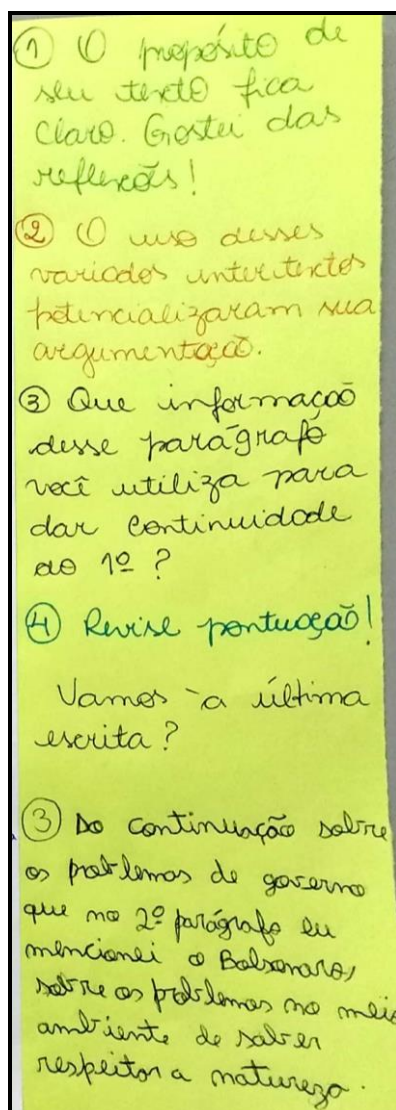 ① O propósito de
seu texto fica
claro. Gostei das
reflexões!
② O uso desses
variados intertextos
potencializaram sua
argumentação.
③ Que informação
desse parágrafo
você utiliza para
dar continuidade
ao 1º ?
④ Revise pontuação!
Vamos à última
escrita?
③ Do continuação sobre
os problemas de governo
que no 2º parágrafo eu
mencionei o Bolsonaro,
sobre os problemas no meio
ambiente de saber
respeitar a natureza.